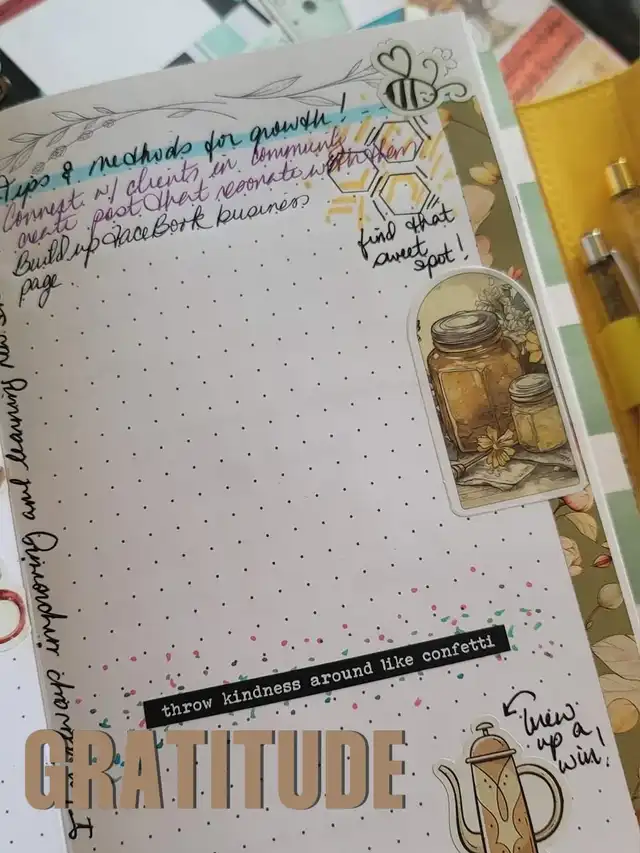 Tips & methods for growth!
Connect w/ clients in community
create post that resonate with them
Build up FaceBook business
page
find that
sweet
spot!
throw kindness around like confetti
GRATITUDE
brew
up a
win!
improving and learning